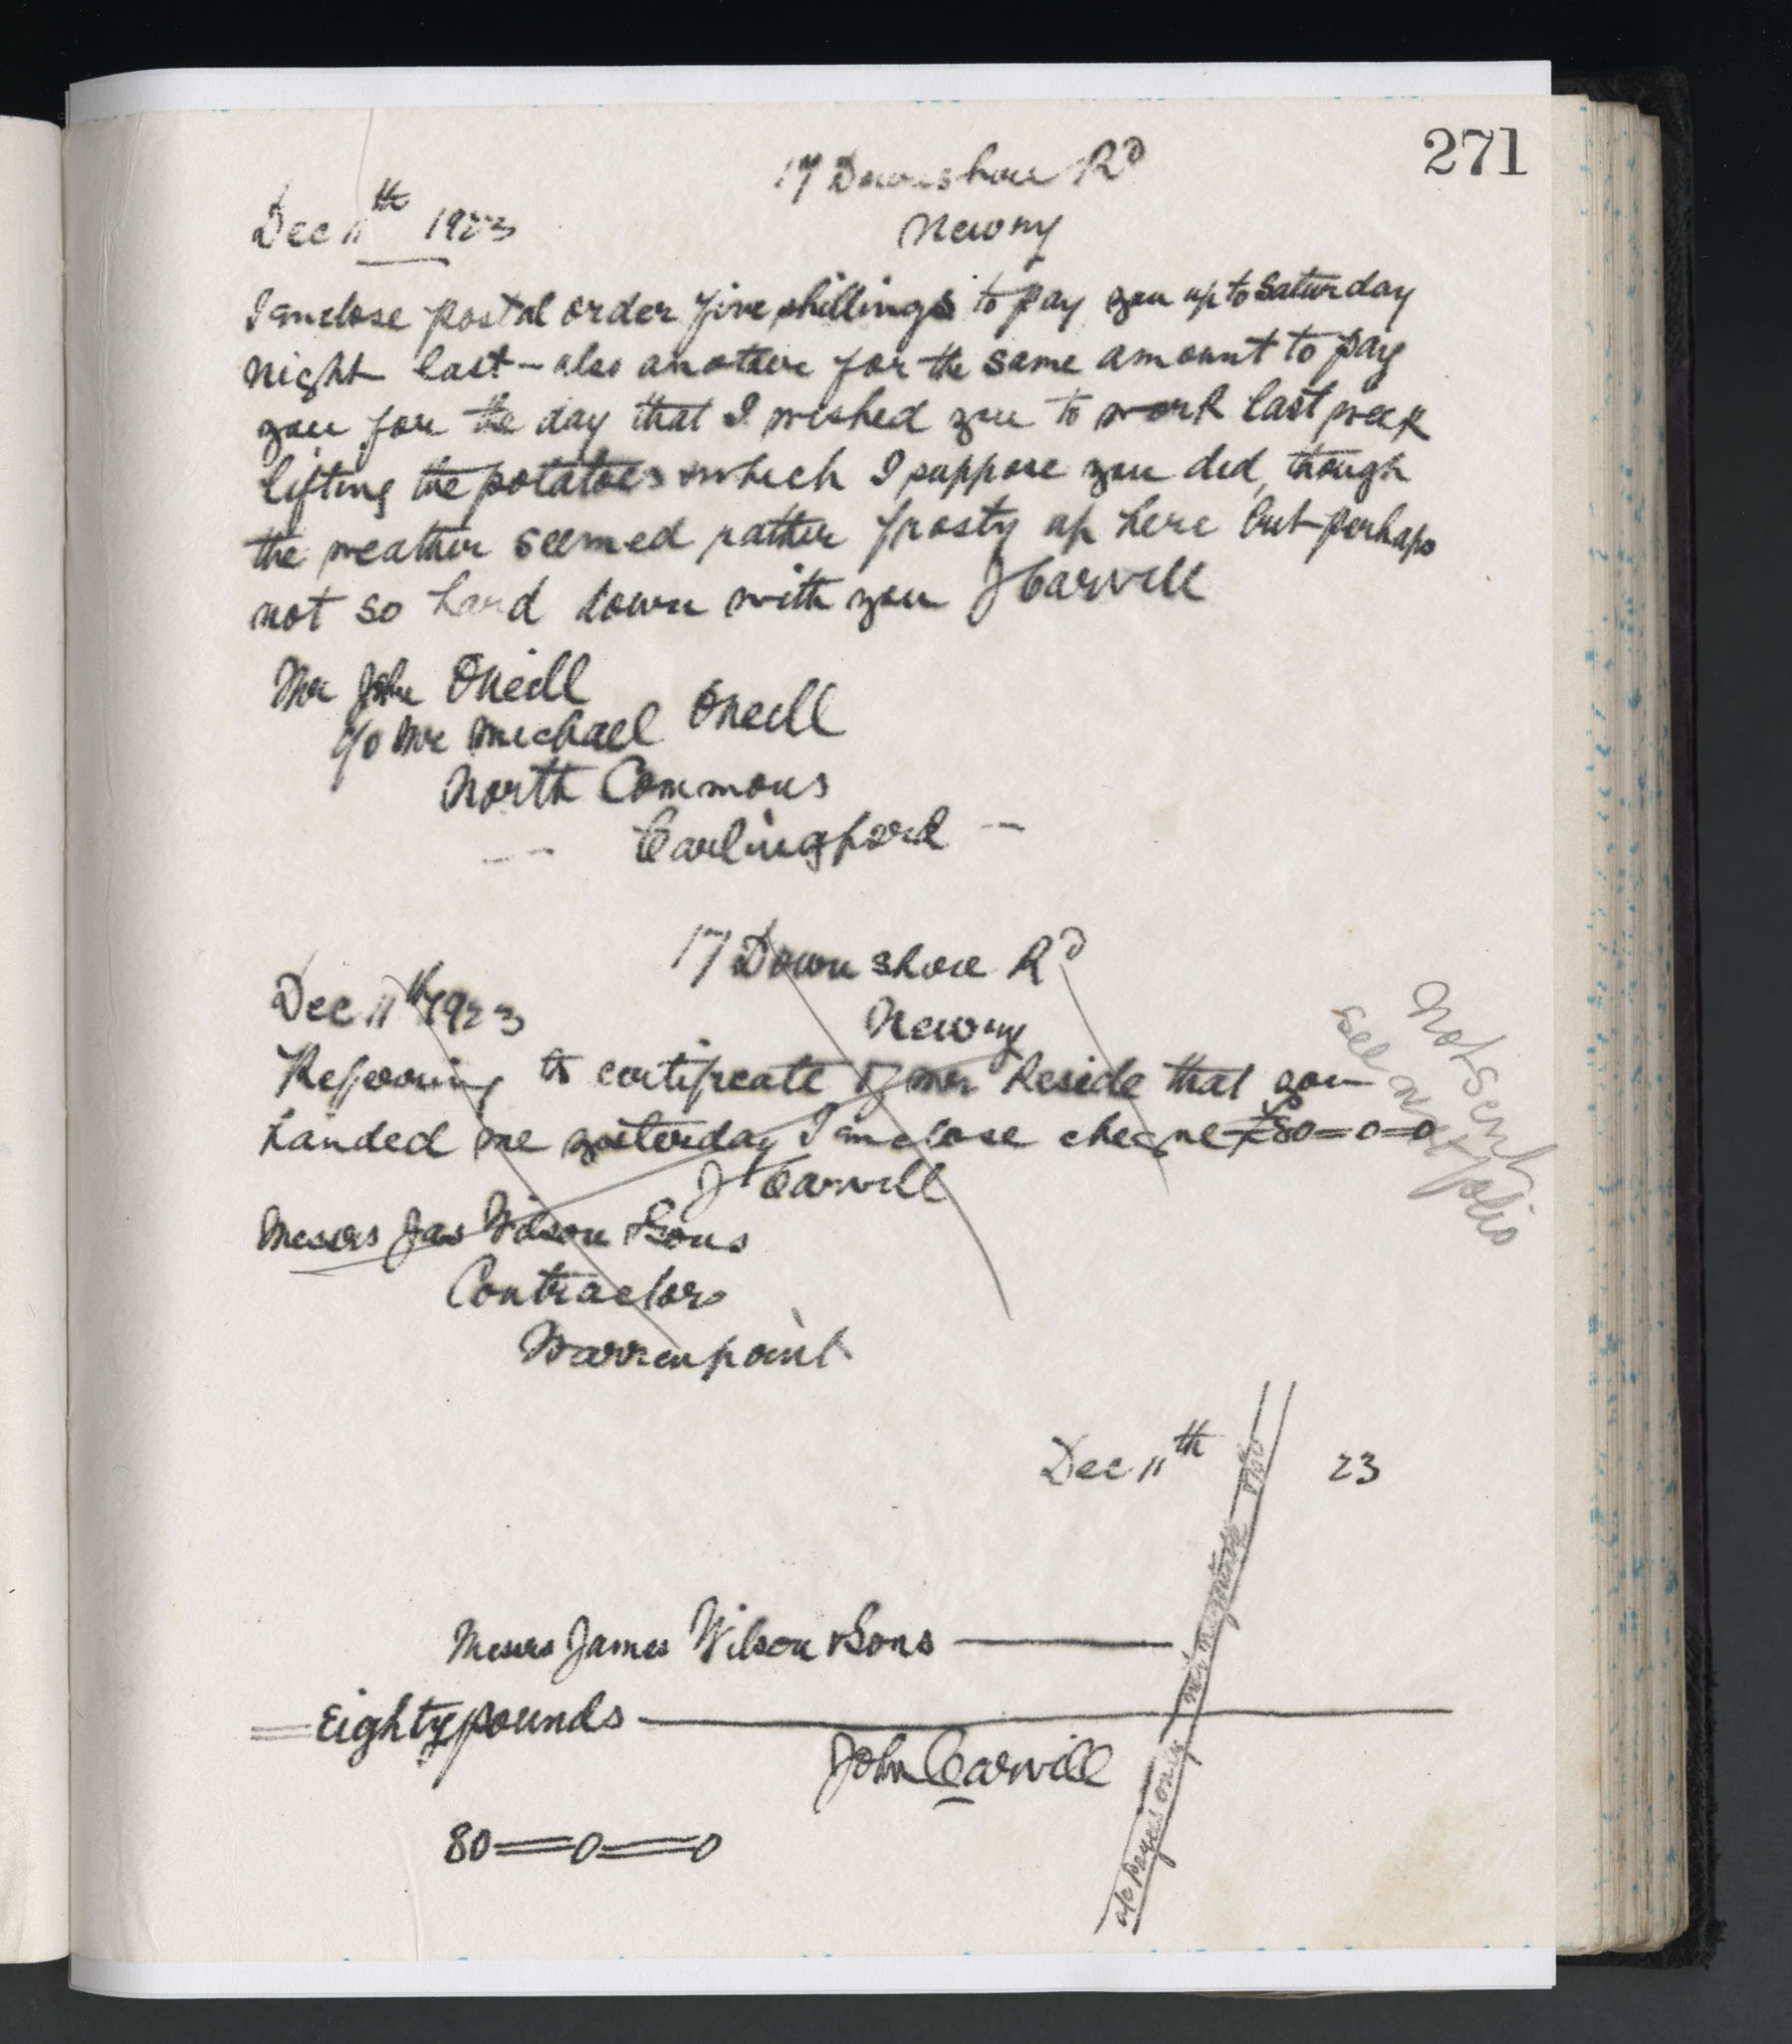 271
17 Downshire Rd
Dec 11th 1923
Newry
I enclose postal order five shillings to pay you up to Saturday
night last – also another for the same amount to pay
you for the day that I wished you to work last week
lifting the potatoes which I suppose you did, though
the weather seemed rather frosty up here but perhaps
not so hard down with you J Carvill
Mr John ONeill
c/o Mr Michael ONeill
North Commons
-- Carlingford --
17 Downshire Rd
Dec 11th 1923
Newry
Referring to certificate of Mr Reside that you
handed me yesterday I enclose cheque £80=0=0
J Carvill
Messrs Jas Wilson & Sons
Contractors
Warrenpoint
Not sent
see next folio
Dec 11th 23
Messrs James Wilson & Sons
= Eighty pounds
John Carvill
80=0=0
a/c payees only not negotiable